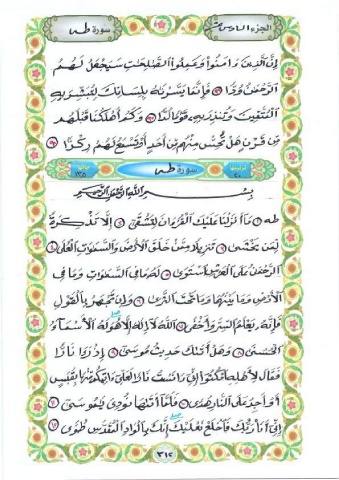 سورة طه
الجزء السادس عشر
إِنَّ الَّذِينَ ءَامَنُوا وَعَمِلُوا الصَّالِحَاتِ سَيَجْعَلُ لَهُمُ
الرَّحْمَٰنُ وُدًّا ٩٦ فَإِنَّمَا يَسَّرْنَاهُ بِلِسَانِكَ لِتُبَشِّرَ بِهِ
الْمُتَّقِينَ وَتُنْذِرَ بِهِ قَوْمًا لُدًّا ٩٧ وَكَمْ أَهْلَكْنَا قَبْلَهُمْ
مِنْ قَرْنٍ هَلْ تُحِسُّ مِنْهُمْ مِنْ أَحَدٍ أَوْ تَسْمَعُ لَهُمْ رِكْزًا ٩٨
سورة طه ١٣٥ ٢٠
بِسْمِ اللَّهِ الرَّحْمَٰنِ الرَّحِيمِ
طه ١ مَا أَنْزَلْنَا عَلَيْكَ الْقُرْءَانَ لِتَشْقَىٰ ٢ إِلَّا تَذْكِرَةً
لِمَنْ يَخْشَىٰ ٣ تَنْزِيلًا مِمَّنْ خَلَقَ الْأَرْضَ وَالسَّمَاوَاتِ الْعُلَى ٤
الرَّحْمَٰنُ عَلَى الْعَرْشِ اسْتَوَىٰ ٥ لَهُ مَا فِي السَّمَاوَاتِ وَمَا فِي
الْأَرْضِ وَمَا بَيْنَهُمَا وَمَا تَحْتَ الثَّرَىٰ ٦ وَإِنْ تَجْهَرْ بِالْقَوْلِ
فَإِنَّهُ يَعْلَمُ السِّرَّ وَأَخْفَى ٧ اللَّهُ لَا إِلَٰهَ إِلَّا هُوَ لَهُ الْأَسْمَاءُ
الْحُسْنَىٰ ٨ وَهَلْ أَتَاكَ حَدِيثُ مُوسَىٰ ٩ إِذْ رَءَا نَارًا
فَقَالَ لِأَهْلِهِ امْكُثُوا إِنِّي ءَانَسْتُ نَارًا لَعَلِّي ءَاتِيكُمْ مِنْهَا بِقَبَسٍ
أَوْ أَجِدُ عَلَى النَّارِ هُدًى ١٠ فَلَمَّا أَتَاهَا نُودِيَ يَا مُوسَىٰ ١١
إِنِّي أَنَا رَبُّكَ فَاخْلَعْ نَعْلَيْكَ إِنَّكَ بِالْوَادِ الْمُقَدَّسِ طُوًى ١٢
٣١٢